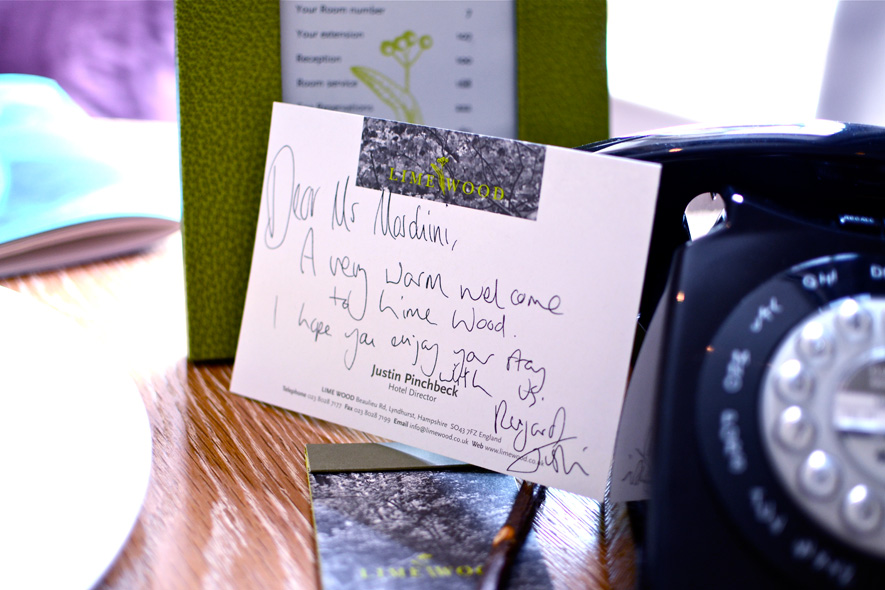 Your Room number
7
Your extension
Reception
Room service
Reservations
LIME WOOD
Dear Mr Marchini,
A very warm welcome
to Lime Wood.
I hope you enjoy your stay
with us.
Justin Pinchbeck
Hotel Director
LIME WOOD Beaulieu Rd, Lyndhurst, Hampshire SO43 7FZ England
Telephone 023 8028 7177 Fax 023 8028 7199 Email info@limewood.co.uk Web www.limewood.co.uk
Regards
Justin
LIME WOO